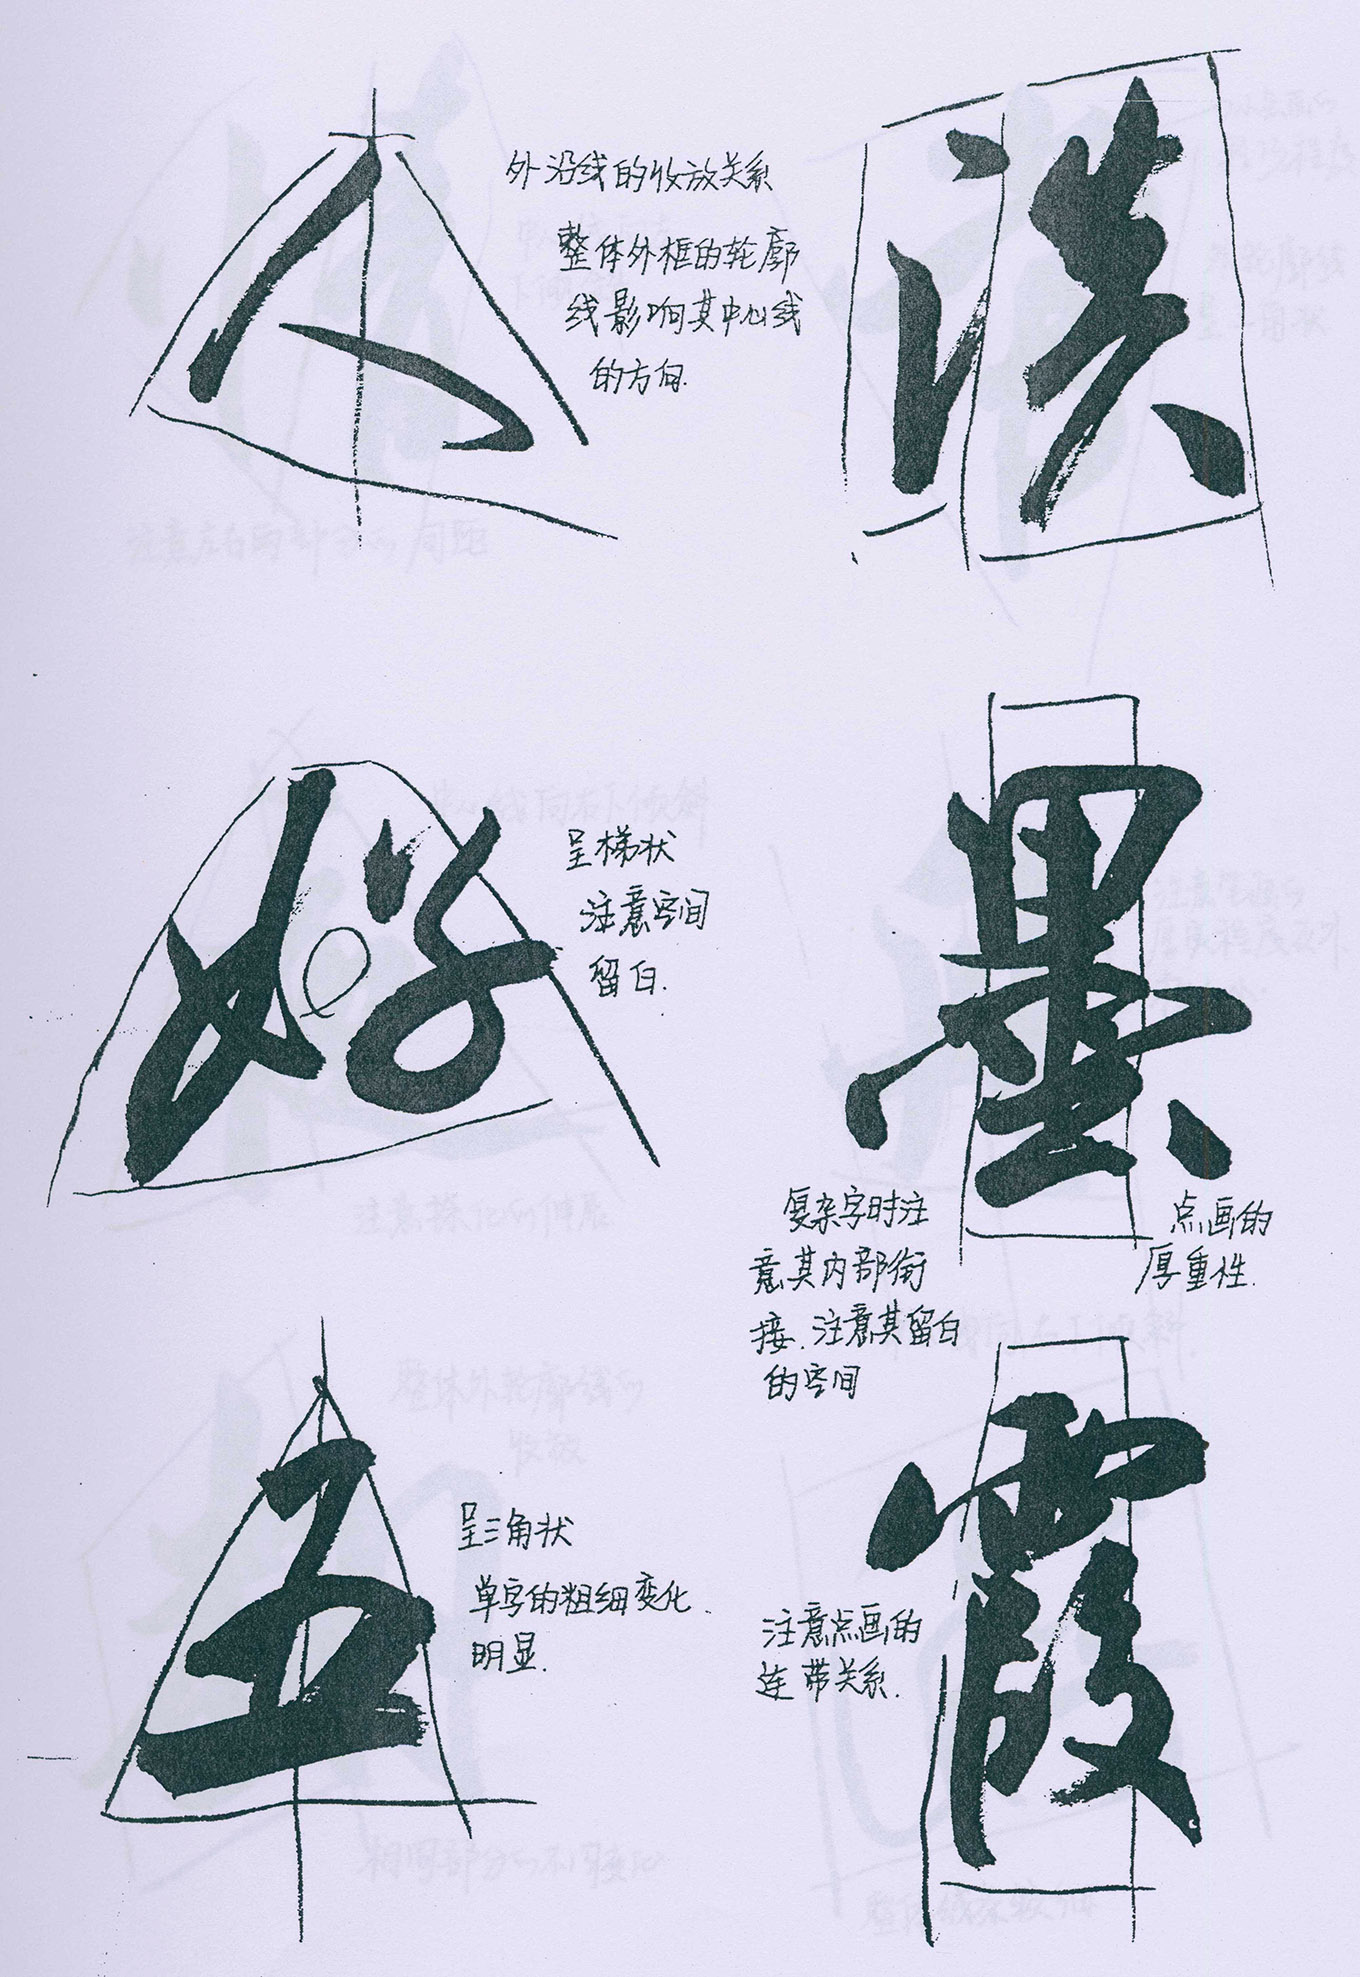 人
外沿线的收放关系
整体外框的轮廓
线影响其中心线
的方向.
淡
好
呈梯状
注意空间
留白.
墨
复杂字时注
意其内部衔
接.注意其留白
的空间
点画的
厚重性.
五
呈三角状
单字的粗细变化.
明显.
霞
注意点画的
连带关系.